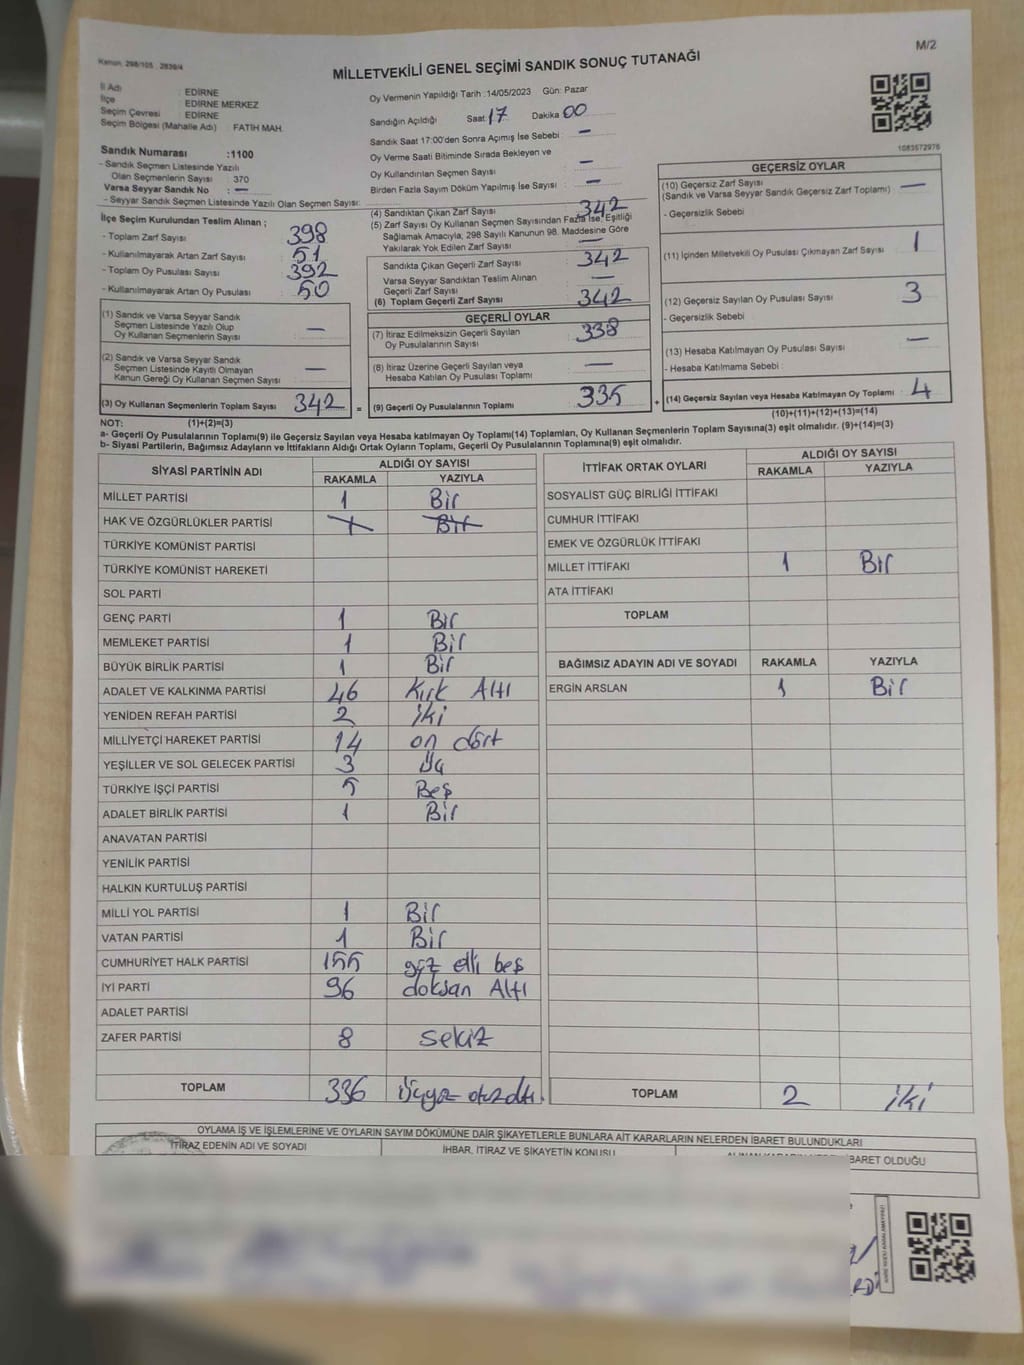 M/2
Kanun: 298/105 : 2839/4
MİLLETVEKİLİ GENEL SEÇİMİ SANDIK SONUÇ TUTANAĞI
İl Adı : EDİRNE
İlçe : EDİRNE MERKEZ
Seçim Çevresi : EDİRNE
Seçim Bölgesi (Mahalle Adı) : FATİH MAH.
Oy Vermenin Yapıldığı Tarih :14/05/2023 Gün: Pazar
Sandığın Açıldığı Saat: 17 Dakika 00
Sandık Saat 17:00'den Sonra Açımış İse Sebebi : —
Oy Verme Saati Bitiminde Sırada Bekleyen ve
Oy Kullandırılan Seçmen Sayısı : —
Birden Fazla Sayım Döküm Yapılmış İse Sayısı : —
1083572976
Sandık Numarası :1100
- Sandık Seçmen Listesinde Yazılı
Olan Seçmenlerin Sayısı : 370
Varsa Seyyar Sandık No : —
- Seyyar Sandık Seçmen Listesinde Yazılı Olan Seçmen Sayısı:
İlçe Seçim Kurulundan Teslim Alınan ;
- Toplam Zarf Sayısı 398
- Kullanılmayarak Artan Zarf Sayısı 51
- Toplam Oy Pusulası Sayısı 392
- Kullanılmayarak Artan Oy Pusulası 50
(1) Sandık ve Varsa Seyyar Sandık
Seçmen Listesinde Yazılı Olup
Oy Kullanan Seçmenlerin Sayısı —
(2) Sandık ve Varsa Seyyar Sandık
Seçmen Listesinde Kayıtlı Olmayan
Kanun Gereği Oy Kullanan Seçmen Sayısı —
(3) Oy Kullanan Seçmenlerin Toplam Sayısı 342
(4) Sandıktan Çıkan Zarf Sayısı 342
(5) Zarf Sayısı Oy Kullanan Seçmen Sayısından Fazla İse, Eşitliği
Sağlamak Amacıyla, 298 Sayılı Kanunun 98. Maddesine Göre
Yakılarak Yok Edilen Zarf Sayısı —
Sandıkta Çıkan Geçerli Zarf Sayısı 342
Varsa Seyyar Sandıktan Teslim Alınan
Geçerli Zarf Sayısı —
(6) Toplam Geçerli Zarf Sayısı 342
GEÇERLİ OYLAR
(7) İtiraz Edilmeksizin Geçerli Sayılan
Oy Pusulalarının Sayısı 338
(8) İtiraz Üzerine Geçerli Sayılan veya
Hesaba Katılan Oy Pusulası Toplamı —
= (9) Geçerli Oy Pusulalarının Toplamı
GEÇERSİZ OYLAR
(10) Geçersiz Zarf Sayısı
(Sandık ve Varsa Seyyar Sandık Geçersiz Zarf Toplamı) —
- Geçersizlik Sebebi :
(11) İçinden Milletvekili Oy Pusulası Çıkmayan Zarf Sayısı 1
(12) Geçersiz Sayılan Oy Pusulası Sayısı 3
- Geçersizlik Sebebi :
(13) Hesaba Katılmayan Oy Pusulası Sayısı —
- Hesaba Katılmama Sebebi :
+ (14) Geçersiz Sayılan veya Hesaba Katılmayan Oy Toplamı 4
NOT: (1)+(2)=(3)
(10)+(11)+(12)+(13)=(14)
a- Geçerli Oy Pusulalarının Toplamı(9) ile Geçersiz Sayılan veya Hesaba katılmayan Oy Toplamı(14) Toplamları, Oy Kullanan Seçmenlerin Toplam Sayısına(3) eşit olmalıdır. (9)+(14)=(3)
b- Siyasi Partilerin, Bağımsız Adayların ve İttifakların Aldığı Oyların Toplamı, Geçerli Oy Pusulalarının Toplamına(9) eşit olmalıdır.
SİYASİ PARTİNİN ADI ALDIĞI OY SAYISI
RAKAMLA YAZIYLA
MİLLET PARTİSİ 1 Bir
HAK VE ÖZGÜRLÜKLER PARTİSİ 1 Bir
TÜRKİYE KOMÜNİST PARTİSİ
TÜRKİYE KOMÜNİST HAREKETİ
SOL PARTİ
GENÇ PARTİ 1 Bir
MEMLEKET PARTİSİ 1 Bir
BÜYÜK BİRLİK PARTİSİ 1 Bir
ADALET VE KALKINMA PARTİSİ 46 Kırk Altı
YENİDEN REFAH PARTİSİ 2 iki
MİLLİYETÇİ HAREKET PARTİSİ 14 on dört
YEŞİLLER VE SOL GELECEK PARTİSİ 3 Üç
TÜRKİYE İŞÇİ PARTİSİ 5 Beş
ADALET BİRLİK PARTİSİ 1 Bir
ANAVATAN PARTİSİ
YENİLİK PARTİSİ
HALKIN KURTULUŞ PARTİSİ
MİLLİ YOL PARTİSİ 1 Bir
VATAN PARTİSİ 1 Bir
CUMHURİYET HALK PARTİSİ 155 yüz elli beş
İYİ PARTİ 96 doksan Altı
ADALET PARTİSİ
ZAFER PARTİSİ 8 sekiz
TOPLAM 336 üçyüz otuzaltı.
İTTİFAK ORTAK OYLARI ALDIĞI OY SAYISI
RAKAMLA YAZIYLA
SOSYALİST GÜÇ BİRLİĞİ İTTİFAKI
CUMHUR İTTİFAKI
EMEK VE ÖZGÜRLÜK İTTİFAKI
MİLLET İTTİFAKI 1 Bir
ATA İTTİFAKI
TOPLAM
BAĞIMSIZ ADAYIN ADI VE SOYADI RAKAMLA YAZIYLA
ERGİN ARSLAN 1 Bir
TOPLAM 2 iki
OYLAMA İŞ VE İŞLEMLERİNE VE OYLARIN SAYIM DÖKÜMÜNE DAİR ŞİKAYETLERLE BUNLARA AİT KARARLARIN NELERDEN İBARET BULUNDUKLARI
İTİRAZ EDENİN ADI VE SOYADI
İHBAR, İTİRAZ VE ŞİKAYETİN KONUSU
İBARET OLDUĞU